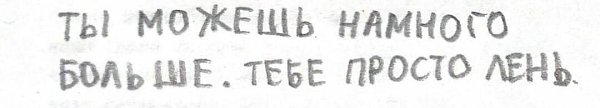 ТЫ МОЖЕШЬ НАМНОГО
БОЛЬШЕ. ТЕБЕ ПРОСТО ЛЕНЬ.